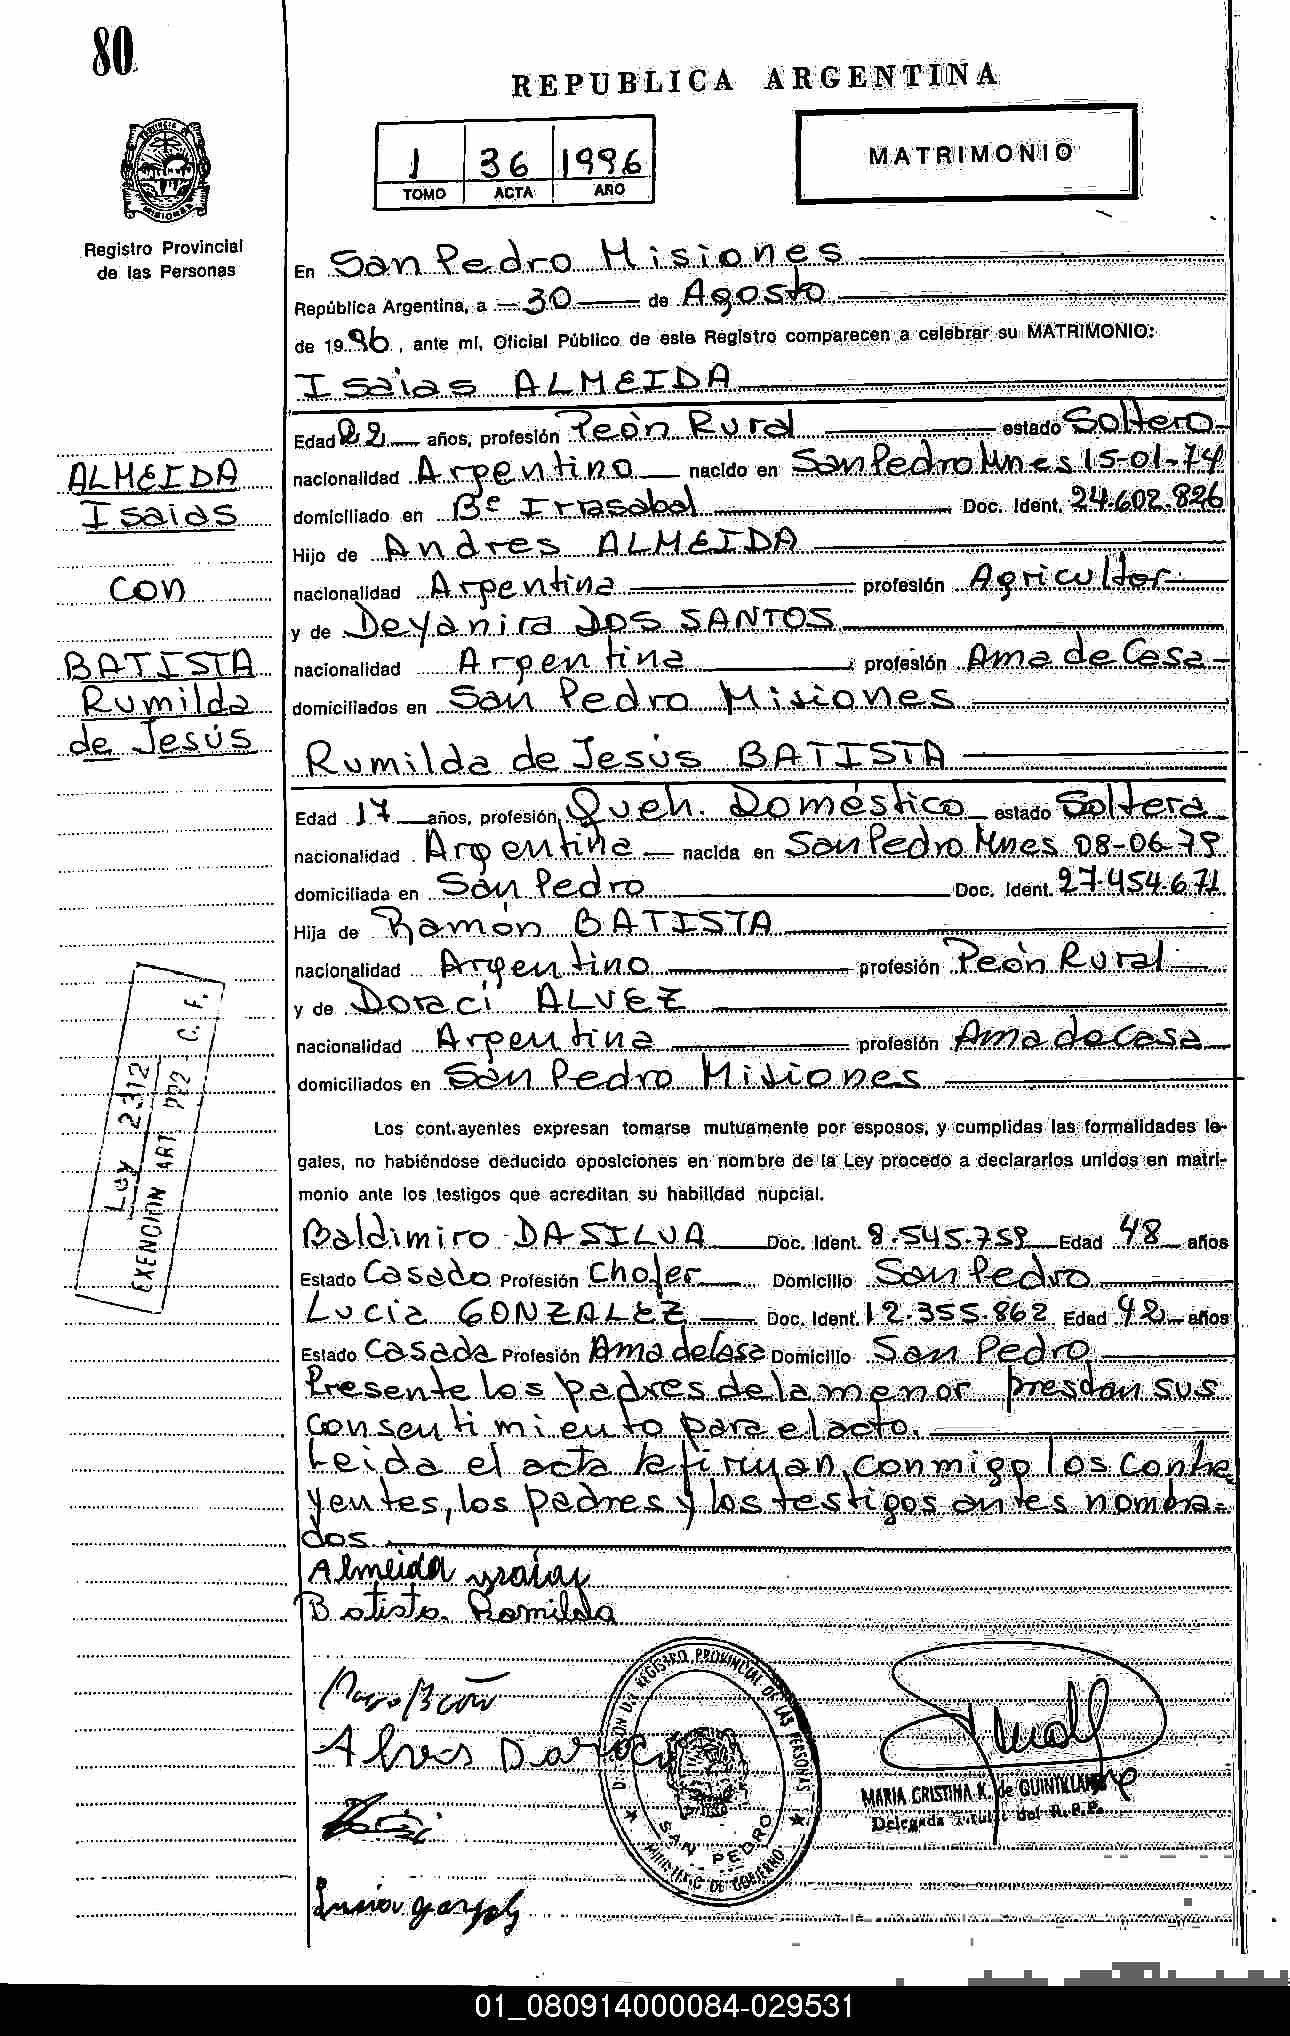 80
REPUBLICA ARGENTINA
1 36 1996
TOMO ACTA AÑO
MATRIMONIO
Registro Provincial
de las Personas
En San Pedro Misiones
República Argentina, a 30 de Agosto
de 1996, ante mí, Oficial Público de este Registro comparecen a celebrar su MATRIMONIO:
Isaias ALMEIDA
Edad 22 años, profesión Peón Rural estado Soltero
nacionalidad Argentino nacido en San Pedro Mnes 15-01-74
domiciliado en Bº Irrasabal Doc. Ident. 24.602.826
Hijo de Andres ALMEIDA
nacionalidad Argentina profesión Agricultor
y de Deyanira DOS SANTOS
nacionalidad Argentina profesión Ama de Casa
domiciliados en San Pedro Misiones
Rumilda de Jesús BATISTA
Edad 17 años, profesión Queh. Doméstico estado Soltera
nacionalidad Argentina nacida en San Pedro Mnes 08-06-79
domiciliada en San Pedro Doc. Ident. 27.454.671
Hija de Ramón BATISTA
nacionalidad Argentino profesión Peón Rural
y de Doraci ALVEZ
nacionalidad Argentina profesión Ama de Casa
domiciliados en San Pedro Misiones
ALMEIDA
Isaias
con
BATISTA
Rumilda
de Jesús
Ley 2312
EXENCION ART. C. F.
Los contrayentes expresan tomarse mutuamente por esposos, y cumplidas las formalidades le-
gales, no habiéndose deducido oposiciones en nombre de la Ley procedo a declararlos unidos en matri-
monio ante los testigos que acreditan su habilidad nupcial.
Baldimiro DA SILVA Doc. Ident. 8.545.759 Edad 48 años
Estado Casado Profesión Chofer Domicilio San Pedro
Lucia GONZALEZ Doc. Ident. 12.355.862 Edad 42 años
Estado Casada Profesión Ama de Casa Domicilio San Pedro
Presente los padres de la menor prestan sus
consentimiento para el acto.
Leida el acta la firman, conmigo los contra
yentes, los padres y los testigos antes nombra-
dos
Almeida Isaias
Batista Romilda
Alves Daraci
DIRECCION DEL REGISTRO PROVINCIAL DE LAS PERSONAS
SAN PEDRO
MINISTERIO DE GOBIERNO
MARIA CRISTINA K. de QUINTILLAN
Delegada Titular del R.P.P.
Lucia Gonzalez
01_080914000084-029531